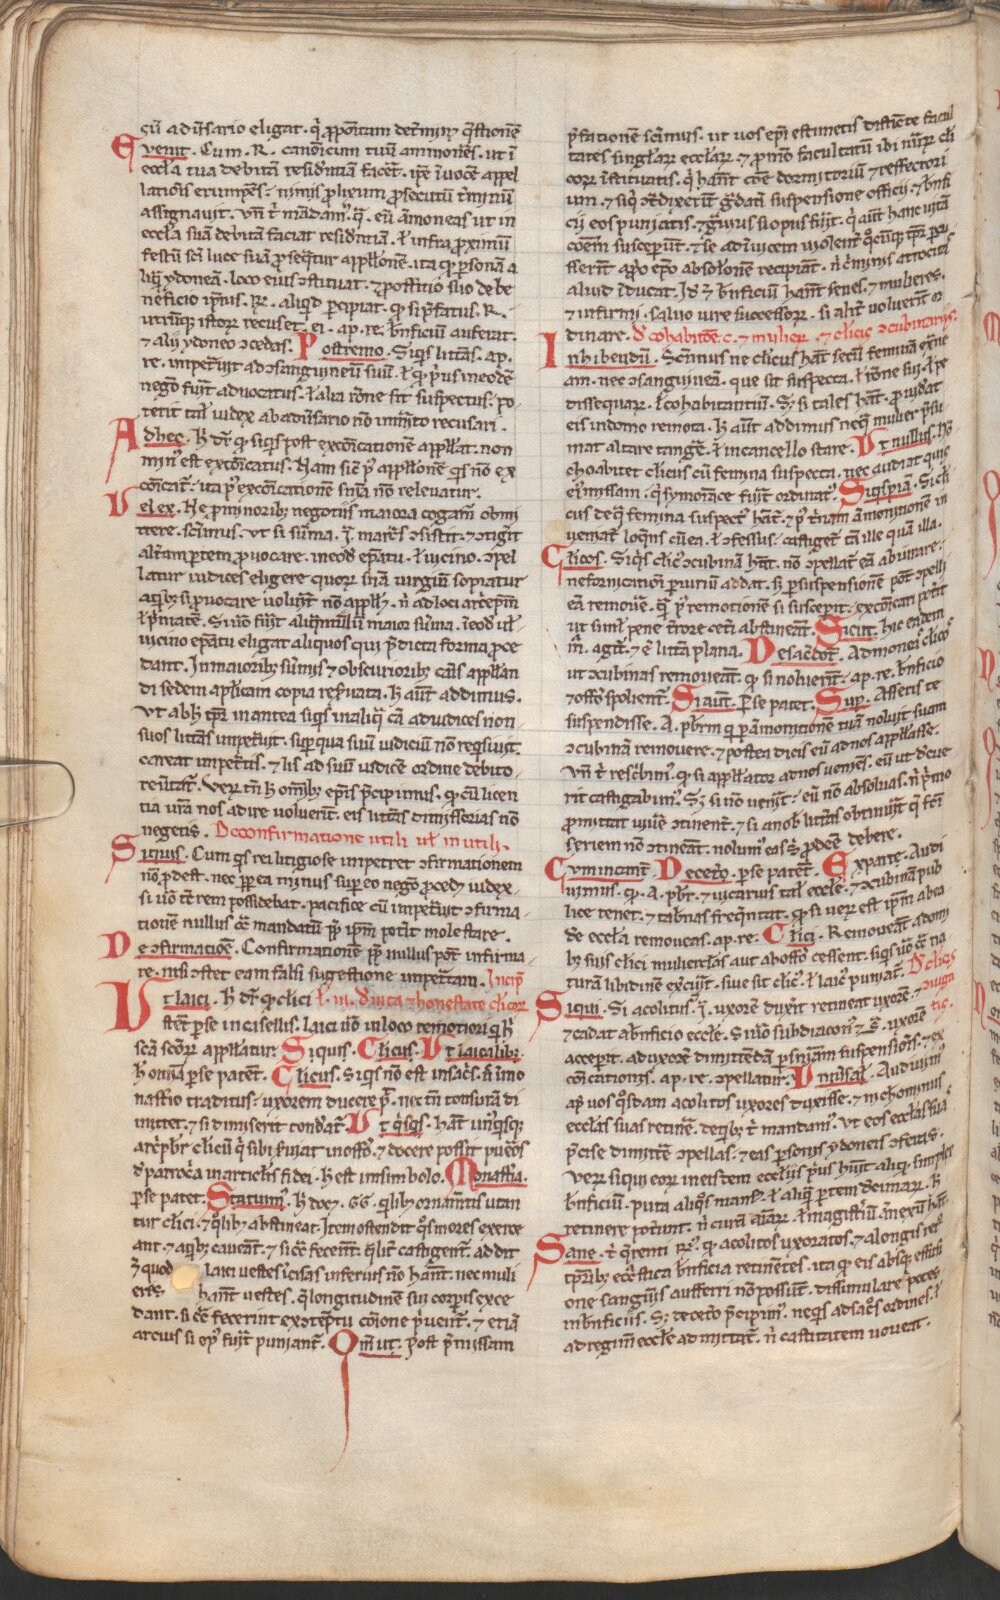 cū adūsario eligat. q̄ ꝓpositum det̄minꝫ q̄stionē
Evenit. Cum. R. canonicum tuū ammonēs. ut ī
eccl̄a tua debitā residentiā facēt. ip̄e ī uocē appel
lationis erumpēs. nimis prolixum ꝓsecutū t̄minū
assignauit. Vn̄ t̄ mādamꝰ. q̄. eū āmoneas ut in
eccl̄a suā debitā faciat residentiā. ł infra proximū
festū sc̄i luce suā ꝓseq̄tur appłłonē. ita qꝫ personā a
liq̄ ydoneā. loco eius ꝯstituat. ⁊
neficio ip̄ius. aliqd percipiat. qꝫ si p̄fatus. R.
utrūq̄ istoꝝ recuset. ei. ap. re. bn̄ficiū auferat.
⁊ alij ydoneo ꝯcedas. Postremo. Siqs litt̄as. ap.
re. impet̄uit ad ꝯsanguineū suū. ł qꝫ p̄us ineodē
negō fuit advocatus. ł alia rōne sit suspectus. po
terit tal̄ iudex ab adūsario nō īmito recusari.
Adhec. h dr̄ qꝫ siquis post excōicationē appłłat. non
minꝰ est excōicatus. Nam sic̄ p̄ appłłonē qs nō ex
cōicat̄. ita p̄ excōicationē snīa nō releuatur.
Vel ex. Ne ꝓ minorib; negotiis maiora cogant̄ obmi
ttere. sc̄imus. ut si sūma. ꝯsistit. ⁊ ꝯtigit
alt̄am partem ꝓuocare. ineodē ep̄atu. ł uicino. ꝯpel
latur iudices eligere quoꝝ snīa iurgiū sopiatur
aqb; si ꝓuocare voluīt nō appłł. n̄ ad loci arc̄ep̄m
ł p̄matē. Siūo fuit maior sūma. ī eod ul
uicino ep̄atu eligat aliquos qui p̄dicta forma ꝓce
dant. In maiorib; sūmis ⁊ obscuriorib; cāis appłłan
di sedem apl̄icam copia reseruata. h aūt addimus.
Vt abh tp̄r in antea siqs inaliq̄ cā ad iudices non
suos litt̄as impet̄uit. sup qua suū iudiciū nō reqsiuit.
careat impet̄is. ⁊ lis ad suū iudicē ordine debito
reūtat̄. Veꝝ tn̄ h om̄ib; ep̄is p̄cipimus. qꝫ cū licen
tia urā nos adire voluerint. eis litt̄as dimissorias nō
negetis. De confirmatione utili ul̄ inutili.
Siquis. Cum qs rei litigiose impetret ꝯfirmationem
nō prodest. nec ꝓpea minus sup eo negō ꝓcedꝫ iudex.
si uō t̄c rem possidebat. pacifice cū impet̄uit ꝯfirma
tionē nullus ꝯt̄ mandatū ꝓp̄ ip̄m potit molestare.
De ꝯfirmatiōe. Confirmationē ꝓp̄ nullus pōt infirma
re. nisi ꝯstet eam falsi sugestione impet̄tam. Incip̄
Vt laici. h dr̄ qꝫ clici ł. iii. d̄ uita ⁊ honestate clicoꝝ
stēt per se in cisellis. laici uō in loco remotiori q̄ h
sc̄a sc̄oꝝ appłłatur. Siquis. Clicus. Vt laicalib;
h omnia per se patēt. Clicus. Siqs nō est insac̄s. s; imo
nastio traditus. uxorem ducere p̄. nec tn̄ tonsurā di
mittet. ⁊ si dimiserit condāt̄. Vt qsqs. hāt unꝰqsqꝫ
arc̄pb̄r clicū q̄ sibi seruiat inoff̄o. ⁊ docere possit pueros
d̄ patrocīa in articłis fidei. h est insimbolo. Monast̄ia.
per se patet. Statuimꝰ. h doc. ꝙlib; ornam̄tis utan
tur clici. ⁊ qlib; abstineat. Item ostendit qs mores exerce
ant. ⁊ aqb; caueant. ⁊ si ꝯt̄ fecerint. qlit̄ castigent̄. addit
⁊ quod laici uestes īcisas inferius nō hānt. nec muli
eres hant uestes. q̄ longitudinē sui corp̄is exce
dant. si ꝯt̄ fecerint ex ꝯteptu cōione p̄uent̄. ⁊ etiā
arcius si opꝰ fuit puniant̄. Om̄ ut. post p̄missam
p̄fationē scīmus. ut uos ep̄i estimetis distīcte facul
tates singłaꝝ eccłaꝝ. ⁊ ꝓ mō facultatū ibi nūeꝝ cli
coꝝ īstituatis. q̄ hānt coē dormitoriū ⁊ reffectori
um. ⁊ siq̄s ꝯt̄dixerit ḡdatī suspensione officij ⁊ bn̄fi
cij eos puniatis. ⁊ ḡuius si opus fuit. q̄ aūt hanc uitā
cōem susceperūt. ⁊ se ad inuicem violent̄
sserīt apō ep̄o absol̄onē recipiāt. n̄ c̄minis atrocitas
aliud īducat. Id ⁊ bn̄ficiū hānt senes. ⁊ mulieres.
⁊ infirmi. saluo iure successoꝝ. si alit̄ voluerīt o
dinare. d̄ cohabitōe. c. ⁊ mulier. ⁊ clicis ꝯcubinariis.
Inhibendū. Sc̄imus ne clicus hāt secū feminā exne
am. nec ꝯsanguineā. que sit suspecta. ł rōne sui. ł pe
dissequaꝝ. ł cohabitantiū. S; si tales hāt. ꝓuidat
eis indomo remota. h aūt addimus neq; mulier p̄su
mat altare tangē. ł incancello stare. Vt nullus. nō
choabitet clicus cū femina suspecta. nec audiat quis
eiꝰ missam. q̄ symoniace fuit ordinat̄. Siqs pia. Si cli
cus de q̄ femina suspect̄ hat̄. ⁊ p̄ t̄nam āmonitionē in
ueniat̄ loqns cū ea. ł ꝯfessus. castiget̄ tā ille quā illa.
Clicos. Siqs clicꝰ ꝯcubinā hāt. nō ꝯpellat̄ eā abiurare.
ne fornicationi piuriū addat. s; per suspensionē pōt ꝯpelli
eā remouē. q̄ p̄ remotionē si susceperit. excōicari potit
ut simil̄ pene t̄rore cet̄i abstineāt. Sicut. hic eadem
m̄. agit̄. ⁊ ē litt̄a plana. De sac̄dot̄. Ad moneas clicos
ut ꝯcubinas remoueāt. qꝫ si noluerit. ap. re. bn̄ficio
⁊ off̄o spolient̄. Si aut̄. per se patet. Sup. Asseris te
suspendisse. A. pb̄rm q̄ p̄ āmonitionē tuā noluit suam
ꝯcubinā remouere. ⁊ postea dicis eū ad nos appłłasse.
Vn̄ t̄ rescbimꝰ. qꝫ si appłłator ad nos ueniēs. eū ut decue
rit castigabimꝰ. S; si nō veniīt. eū nō absoluas. n̄ p̄mo
ꝓmittat uiuē ꝯtinent̄. ⁊ si anob litt̄as obtinuīt q̄ hāc
seriem nō ꝯtineāt. nolumꝰ eas ꝓdesse debere.
Cum incant̄. De cet̄o. per se patent̄. Ex parte. Audi
uimus. qꝫ. A. pb̄r. ⁊ uicarius tal̄ eccl̄e. ⁊ ꝯcubinā pub
lice tenet. ⁊ tab̄nas freqntat. qꝫ si ueꝝ est ip̄m abea
de eccl̄a remoueas. ap. re. Clici. Remoueāt̄ adomi
b; suis clici mulierclas aut aboff̄o cessent. siqs uō ꝯt̄ na
turā libidinē exercuīt. siue sit clicꝰ. ł laicꝰ puniat̄. D̄ clicis
Siqui. Si acolitus. uxorē duxīt retineat uxorē. ꝯiuga
⁊ cadat abn̄ficio eccl̄e. Siuō subdiaconꝰ ⁊ uxorē tis.
acceperit. ad uxorē dimittēdā per sniam suspensiōis. ⁊ ex
cōicationis. ap. re. ꝯpellatur. Vniuersal̄. Audiuimꝰ
ap̄ uos qsdam acolitos uxores duxisse. ⁊ nichominus
eccl̄as suas retinē. de qb; t̄ mandamꝰ. ut eos eccl̄as suas
p̄cise dimittē ꝯpellas. ⁊ eas personis ydoneis ꝯferas.
Veꝝ si qui eoꝝ in eisdem eccl̄iis p̄us huīt aliq̄. simplex
bn̄ficiū. puta aliq̄s mansꝫ. ł aliq̄ partem decimaꝝ. h
retinere potūnt. n̄ curā aīaꝝ. ł magist̄iū
Sane. t̄ q̄renti r̄ꝫ. qꝫ acolitos uxoratos. ⁊ alongis ret̄o
tp̄rib; ecclastica bn̄ficia retinētes. ita qꝫ eis absq; effusi
one sanguinis aufferri nō possūt. dissimulare potes
in bn̄ficiis. S; de cet̄o p̄cipimꝰ. neqs ad sac̄os ordines. ł
ad regimen eccl̄e admittat̄. n̄ castitatem voueat.